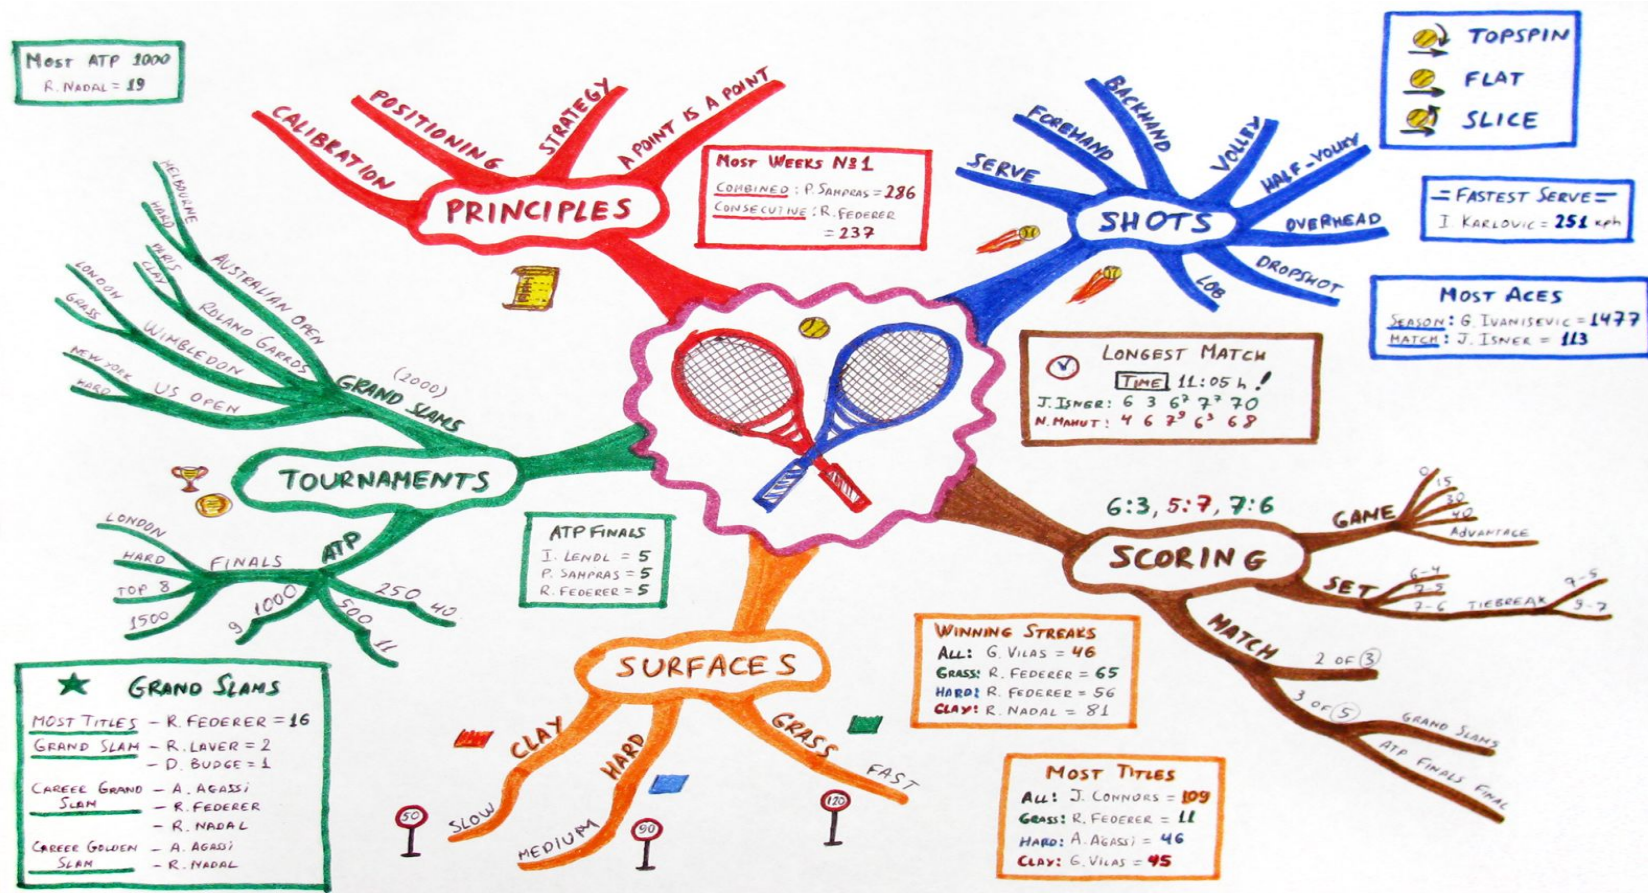 MOST ATP 1000
R. NADAL = 19
PRINCIPLES
CALIBRATION
POSITIONING
STRATEGY
A POINT IS A POINT
MOST WEEKS №1
COMBINED: P. SAMPRAS = 286
CONSECUTIVE: R. FEDERER
= 237
SHOTS
SERVE
FOREHAND
BACKHAND
VOLLEY
HALF-VOLLEY
OVERHEAD
DROPSHOT
LOB
TOPSPIN
FLAT
SLICE
= FASTEST SERVE =
I. KARLOVIC = 251 kph
MOST ACES
SEASON: G. IVANISEVIC = 1477
MATCH: J. ISNER = 113
LONGEST MATCH
TIME 11:05 h!
J. ISNER: 6 3 6⁷ 7⁷ 70
N. MAHUT: 4 6 7⁹ 6³ 68
TOURNAMENTS
GRAND SLAMS
(2000)
AUSTRALIAN OPEN
MELBOURNE
HARD
ROLAND GARROS
PARIS
CLAY
WIMBLEDON
LONDON
GRASS
US OPEN
NEW YORK
HARD
ATP
FINALS
LONDON
HARD
TOP 8
1500
1000
9
500
11
250
40
ATP FINALS
I. LENDL = 5
P. SAMPRAS = 5
R. FEDERER = 5
GRAND SLAMS
MOST TITLES - R. FEDERER = 16
GRAND SLAM - R. LAVER = 2
- D. BUDGE = 1
CAREER GRAND - A. AGASSI
SLAM - R. FEDERER
- R. NADAL
CAREER GOLDEN - A. AGASSI
SLAM - R. NADAL
SURFACES
CLAY
SLOW
50
HARD
MEDIUM
90
GRASS
FAST
120
WINNING STREAKS
ALL: G. VILAS = 46
GRASS: R. FEDERER = 65
HARD: R. FEDERER = 56
CLAY: R. NADAL = 81
MOST TITLES
ALL: J. CONNORS = 109
GRASS: R. FEDERER = 11
HARD: A. AGASSI = 46
CLAY: G. VILAS = 45
6:3, 5:7, 7:6
SCORING
GAME
0
15
30
40
ADVANTAGE
SET
6-4
7-5
7-6
TIEBREAK
7-5
9-7
MATCH
2 OF 3
3 OF 5
GRAND SLAMS
ATP FINALS FINAL